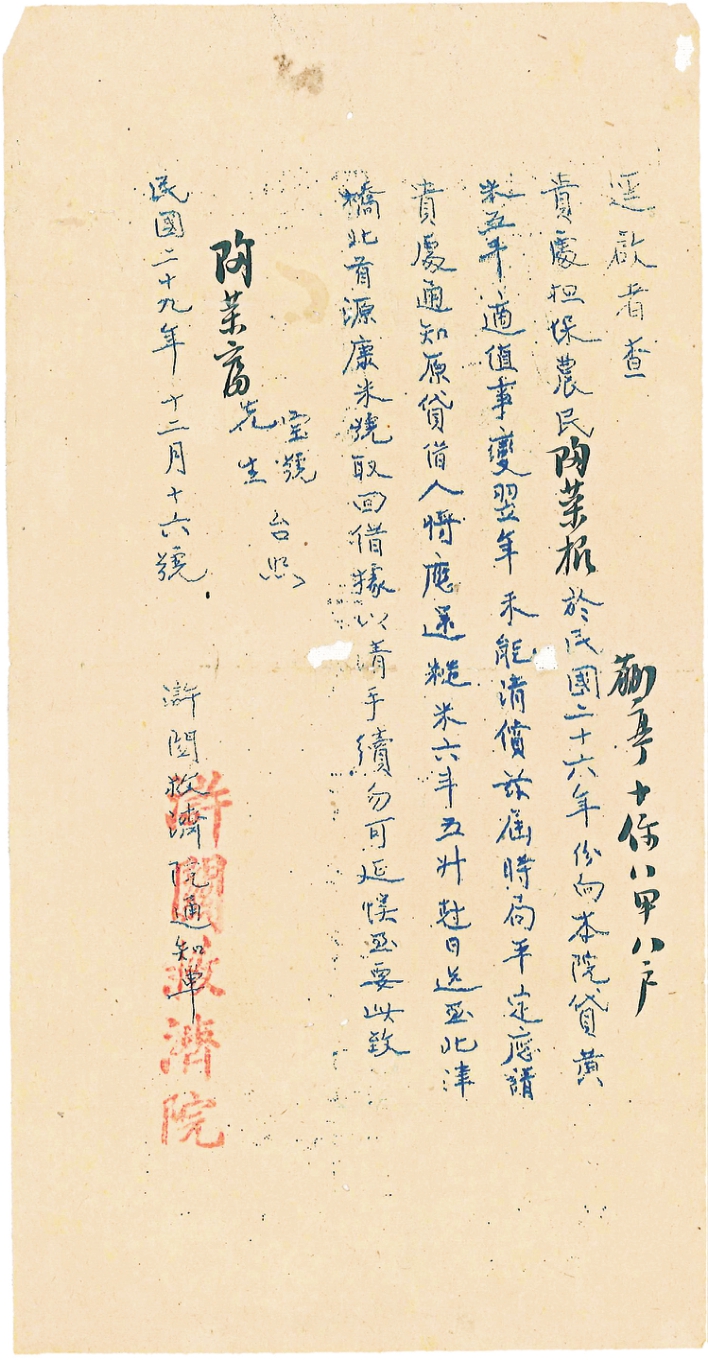 逕啟者查
蘅亭十保八甲八戶
貴處担保農民陶荣根於民國二十六年份向本院貸黄
米五斗適值事變翌年未能清償茲届時局平定應請
貴處通知原貸借人將應還糙米六斗五升赴日送至北津
橋北首源康米號取回借據以清手續勿可延悮至要此致
宝號
陶荣富先生 台照
民國二十九年十二月十六號
滸関救濟院通知單
滸關救濟院